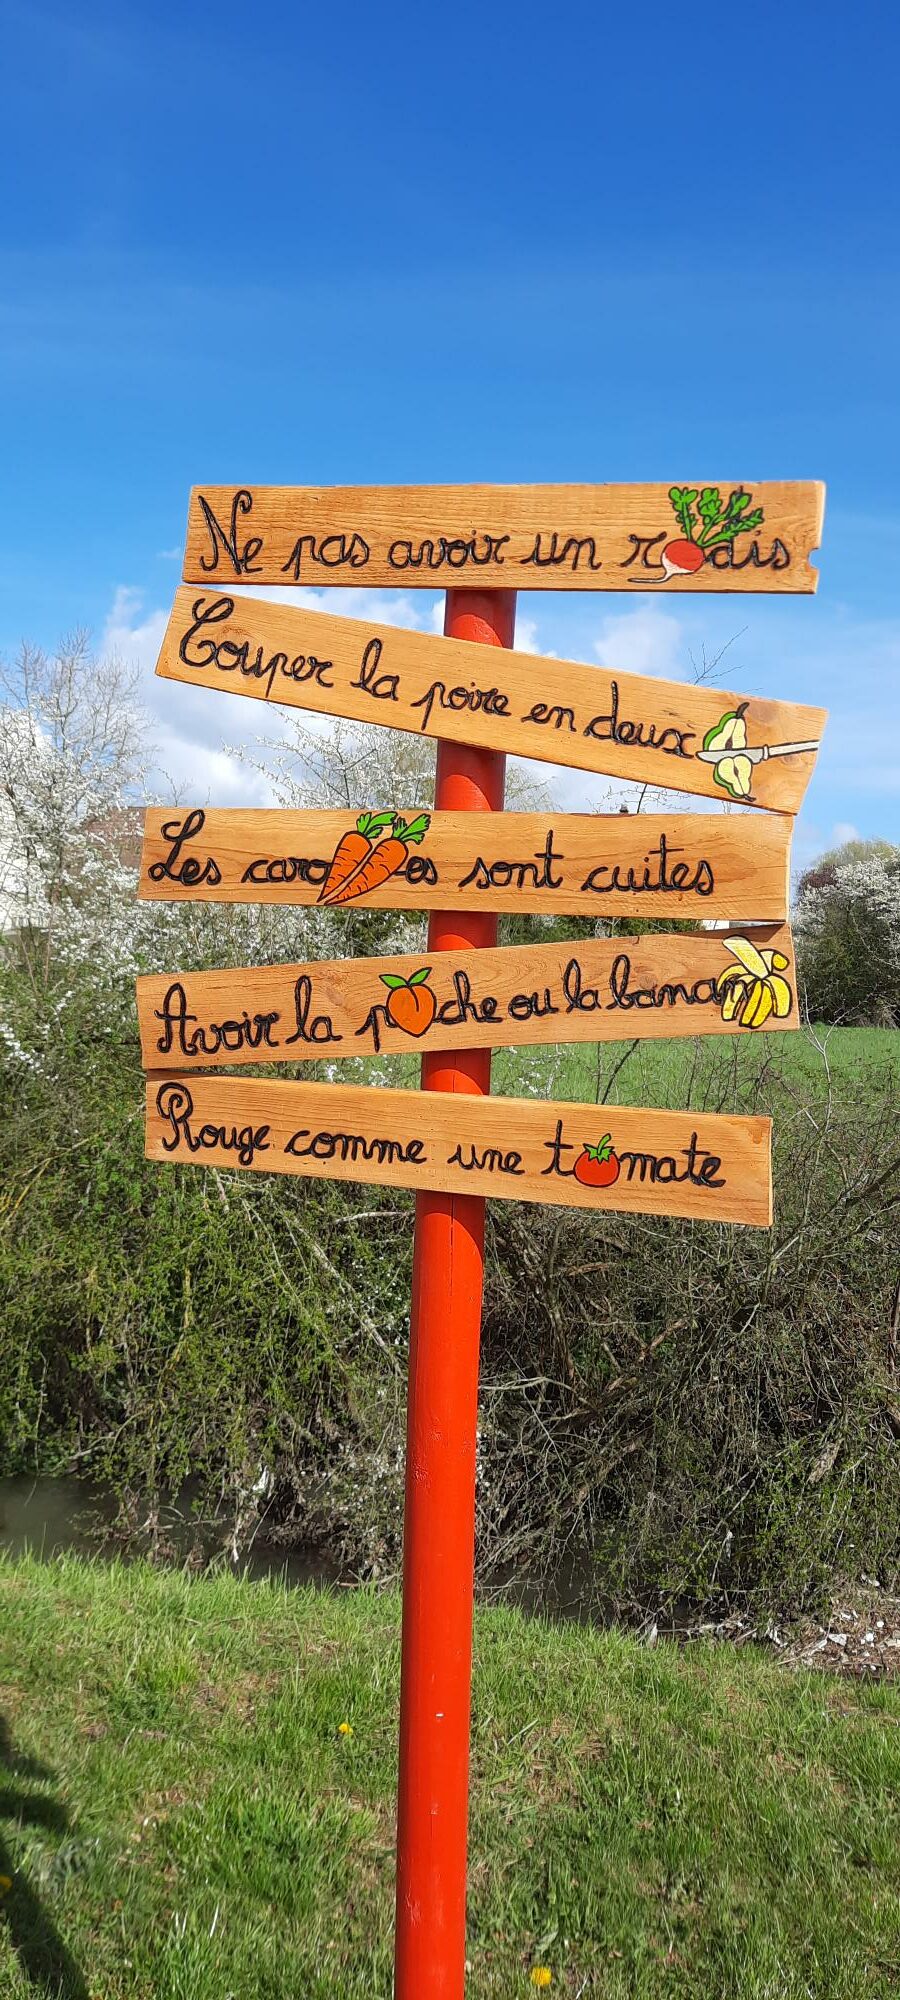 Ne pas avoir un radis
Couper la poire en deux
Les carottes sont cuites
Avoir la pêche ou la banane
Rouge comme une tomate